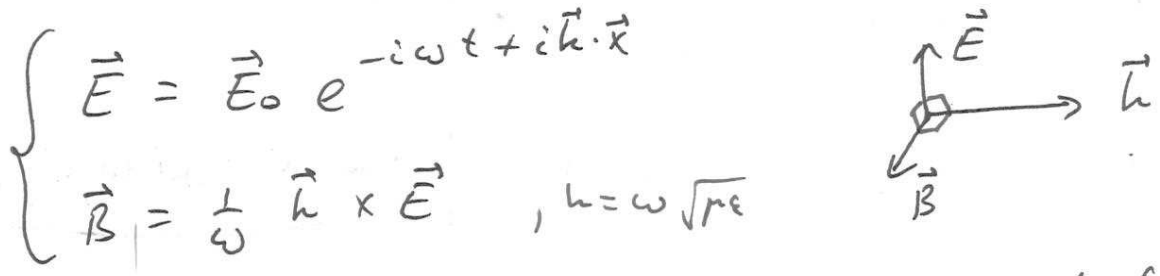 E⃗ = E⃗₀ e^{-iωt + ik⃗·x⃗}
B⃗ = 1/ω k⃗ × E⃗ , k = ω√με
E⃗
k⃗
B⃗